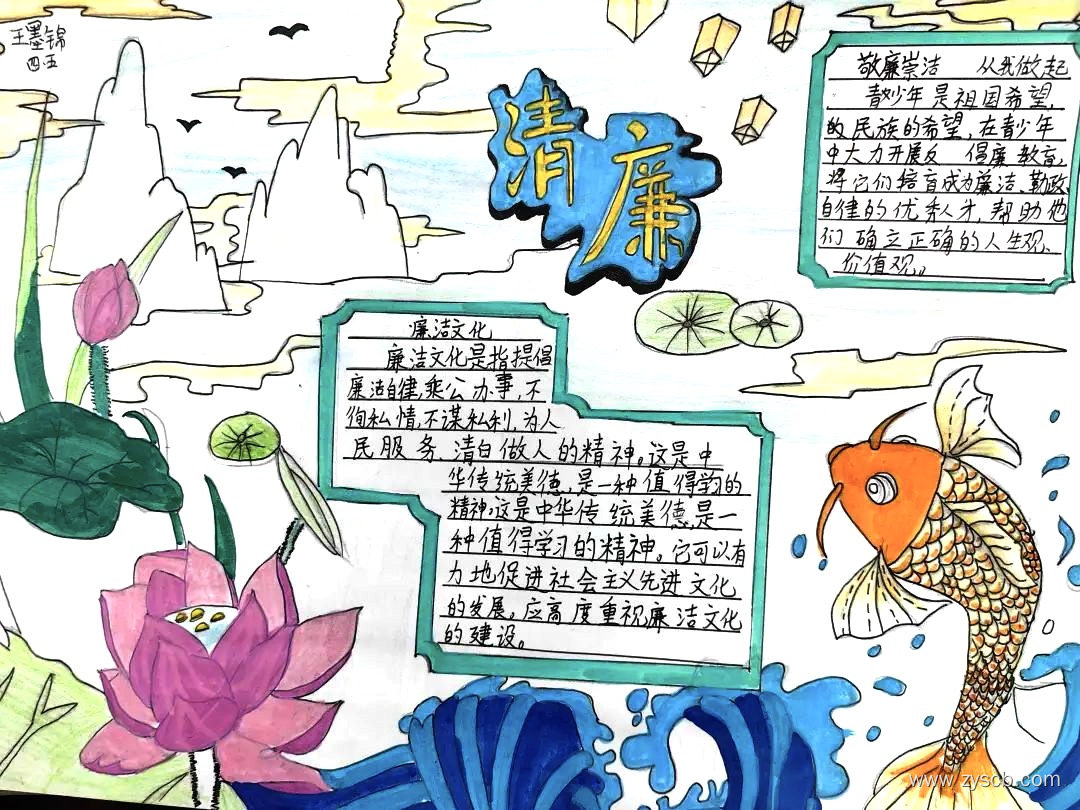 王墨锦
四五
清廉
敬廉崇洁 从我做起
青少年是祖国希望,
的民族的希望,在青少年
中大力开展反 倡廉教育,
将它们培育成为廉洁、勤政、
自律的优秀人才,帮助他
们确立正确的人生观、
价值观。
廉洁文化
廉洁文化是指提倡
廉洁自律,秉公办事,不
徇私情,不谋私利,为人
民服务、清白做人的精神。这是中
华传统美德,是一种值得学习的
精神。这是中华传统美德,是一
种值得学习的精神。它可以有
力地促进社会主义先进文化
的发展。应高度重视廉洁文化
的建设。
www.zyscb.com